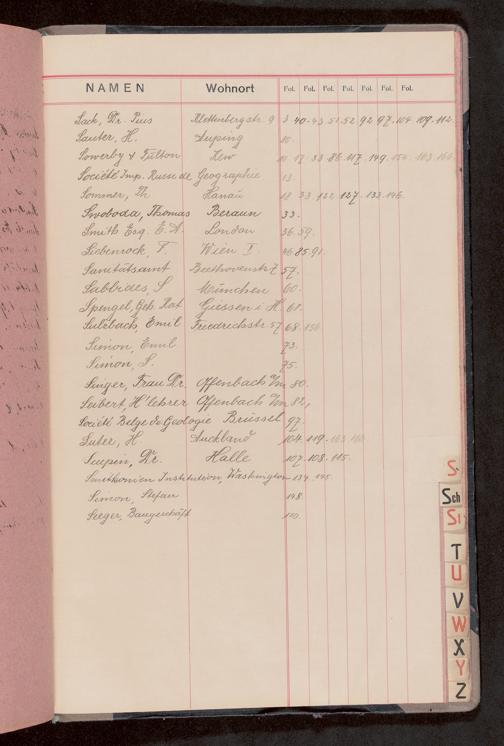 NAMEN Wohnort Fol. Fol. Fol. Fol. Fol. Fol. Fol.
Sack, Dr. Pius Klettenbergstr. 9 3 40 43 51 52 92 97 104 109 112
Sauter, H. 10.
Sowerby & Fulton Kew 10 17 33 86 117 149 154 163 166
Société Imp. Russe de Geographie 13.
Sommer, Th Hanau 18 33 122 127 133 146
Swoboda, Thomas Beraun 33.
Smith Esq. E. A. London 36 59.
Siebenrock, F. Wien I. 46 85 91.
Sanitätsamt Beethovenstr 7 57.
Sabbides, S München 60.
Spengel, Geh. Rat Giessen i H. 61.
Sulzbach, Emil Friedrichstr. 57 68 150
Simon, Emil 73.
Simon, S. 75.
Singer, Frau Dr. Offenbach a/m 80.
Seibert, H'lehrer Offenbach a/m 82,
Société Belge de Geologie Brüssel 97.
Suter, H Auckland 104 119 163
Supin, Dr. Halle 107 108 115.
Smithonien Institution, Washington 134 145.
Simon, Stefan 148.
Seeger, Baugeschäft 150.
S
Sch
St
T
U
V
W
X
Y
Z